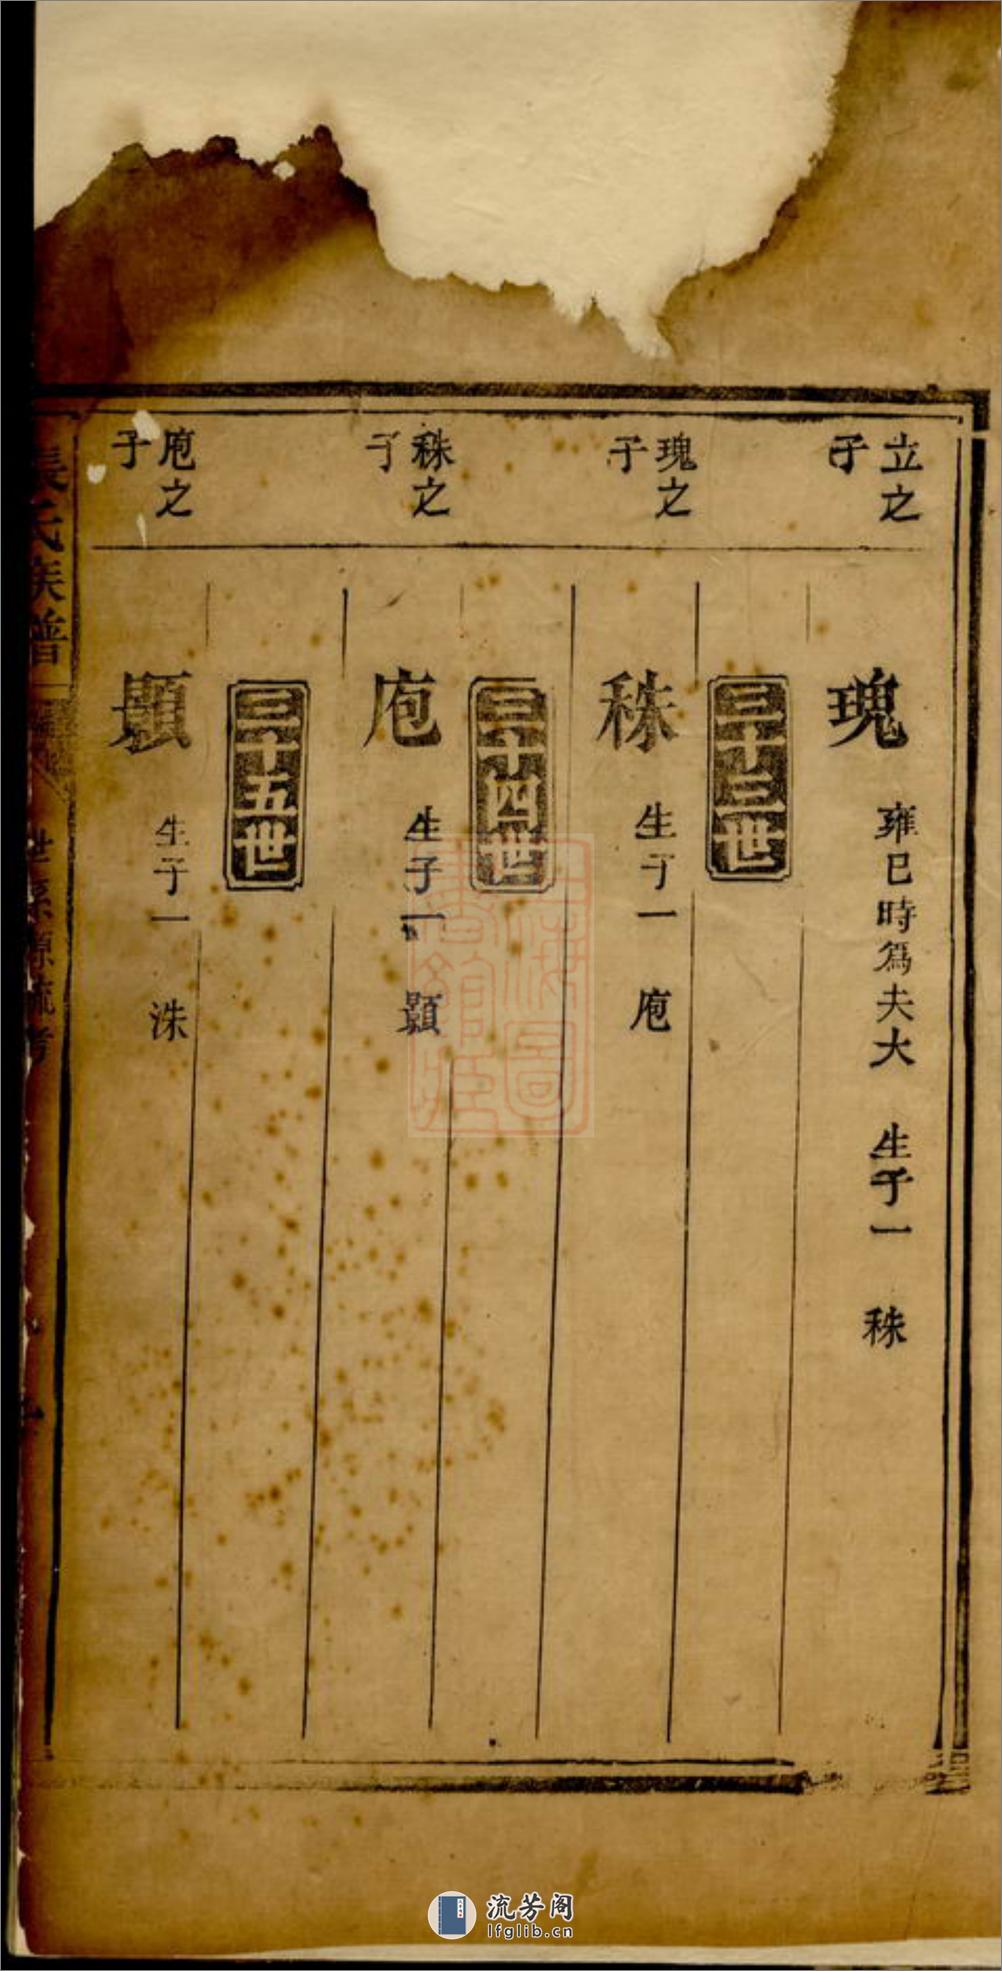 立之子
瑰 雍已時為夫大 生子一 秼
三十三世
瑰之子
秼 生子一 庖
三十四世
秼之子
庖 生子一 顥
三十五世
庖之子
顥 生子一 洙
張氏族譜
世系源流考
上海圖書館藏
流芳阁
lfglib.cn